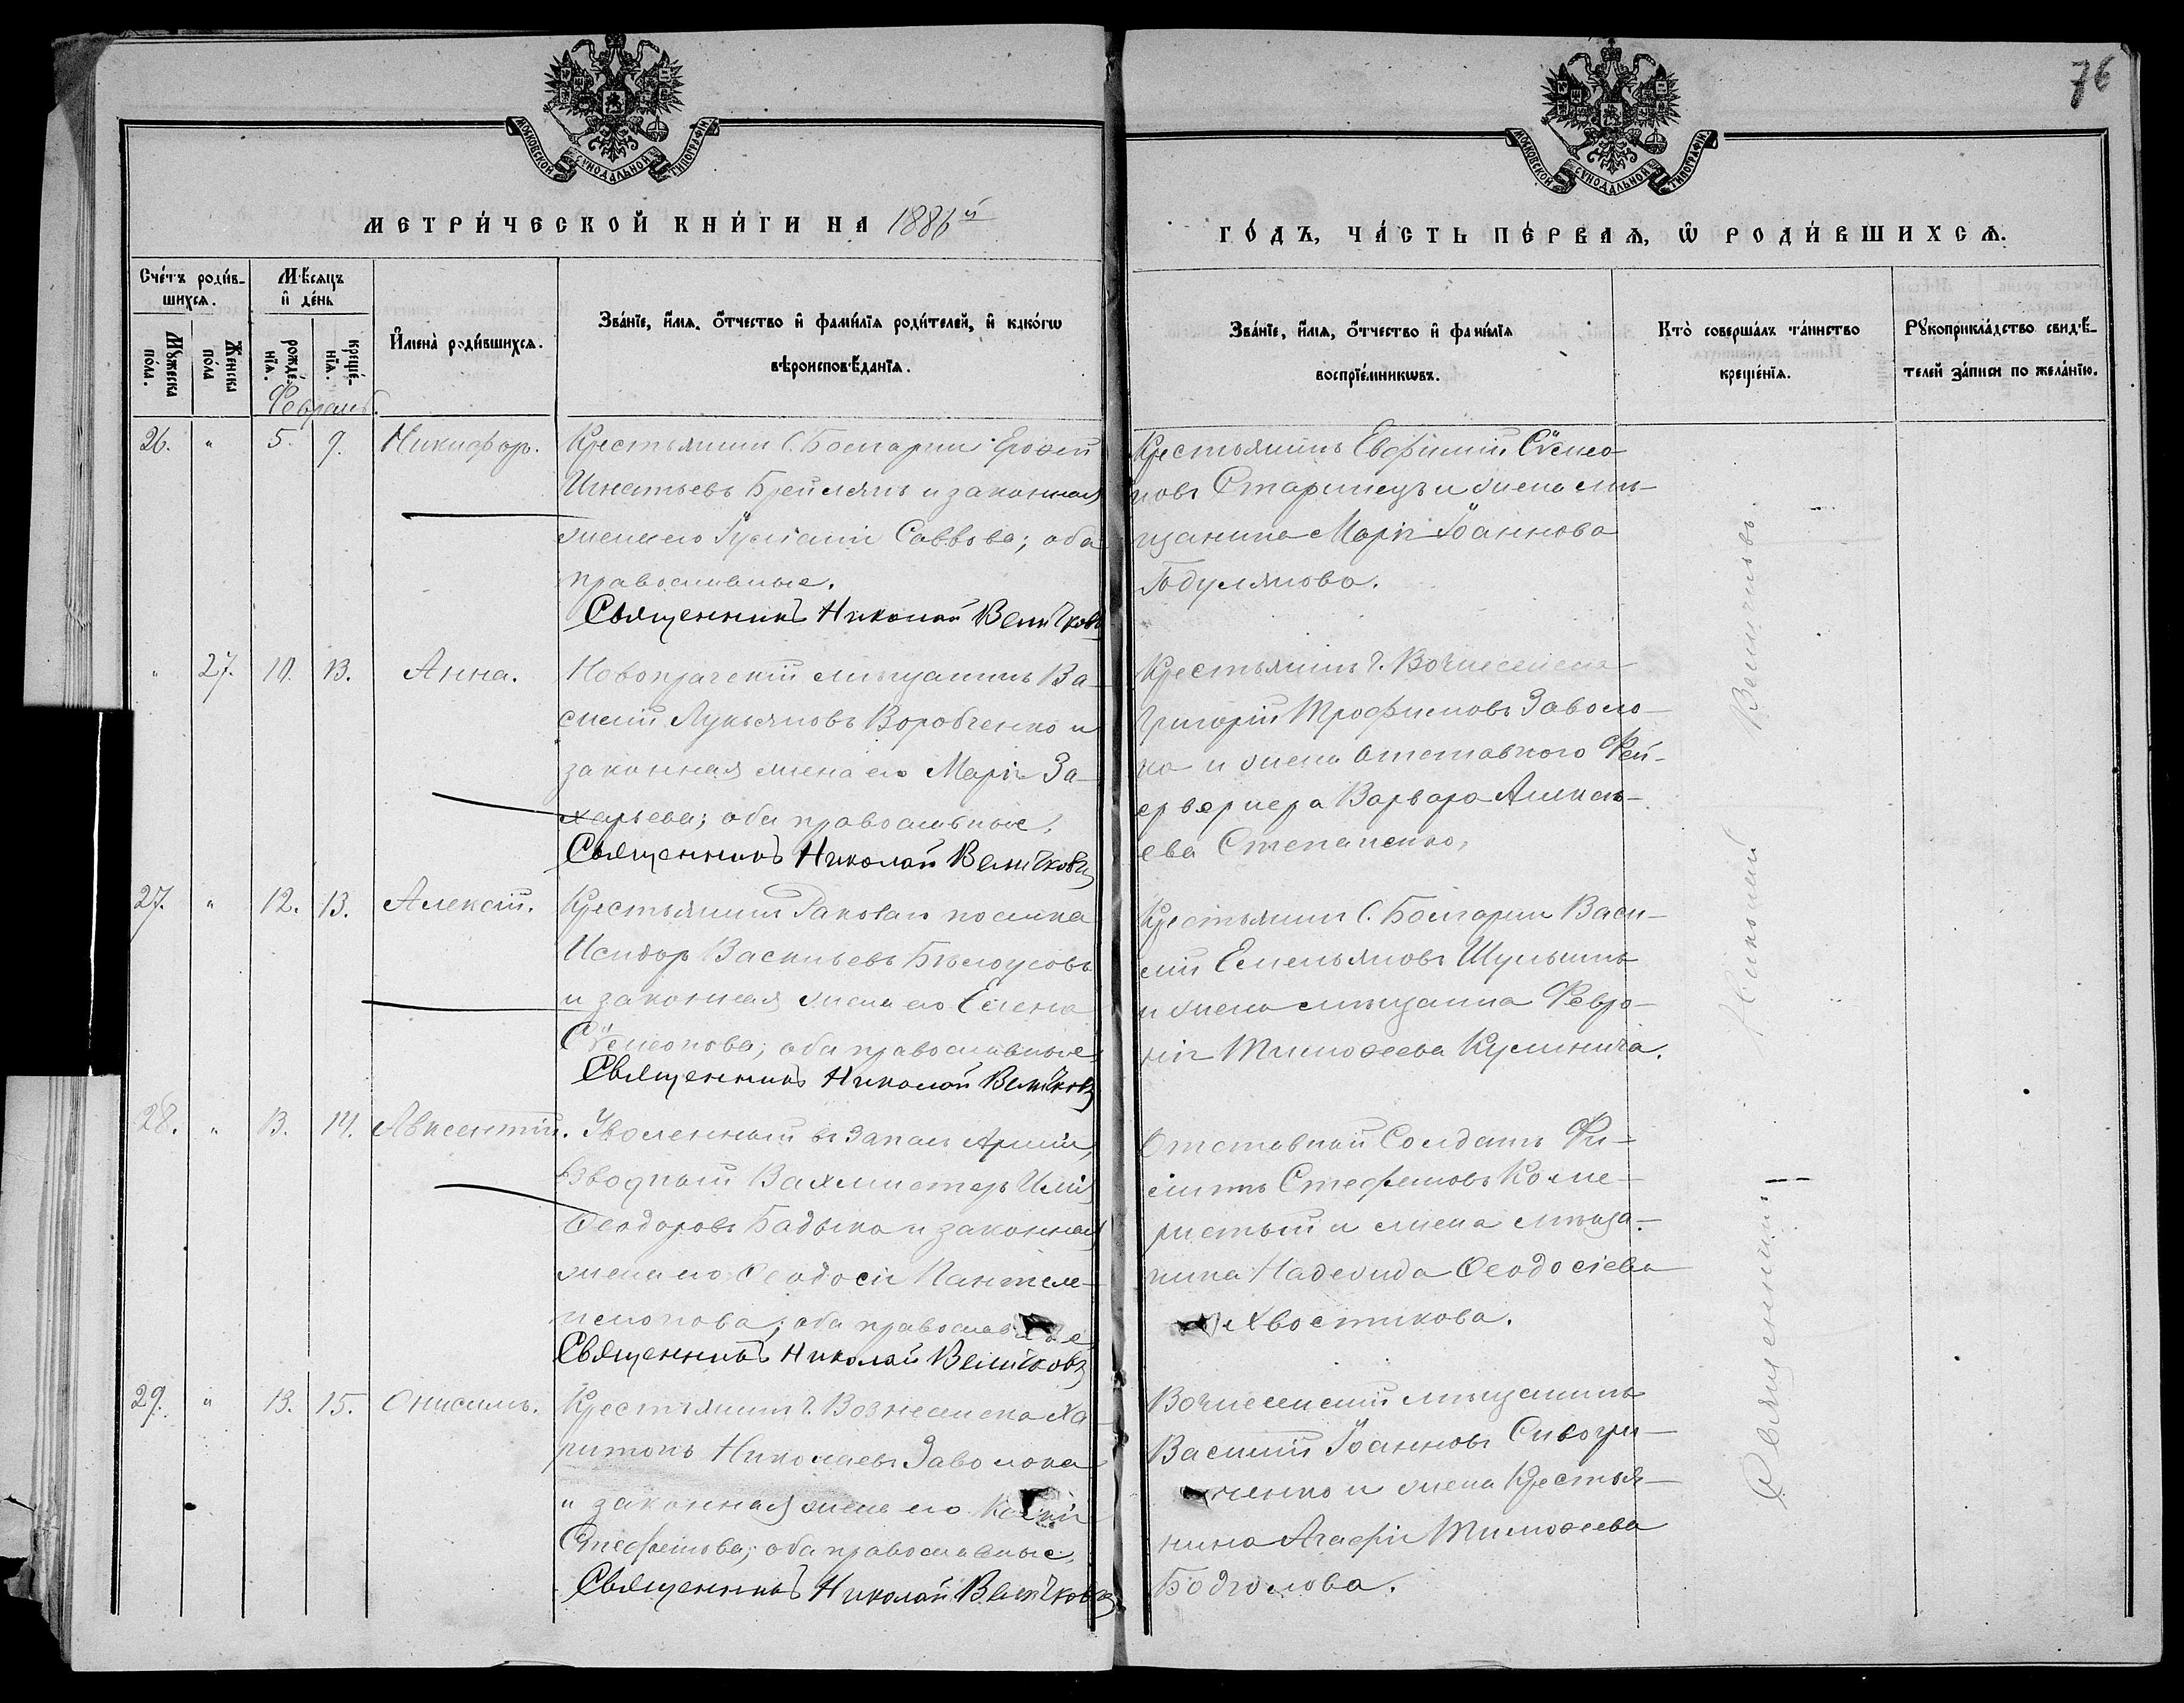 76
МОСКОВСКОЙ СѴНОДАЛЬНОЙ ТИПОГРАФІИ
МОСКОВСКОЙ СѴНОДАЛЬНОЙ ТИПОГРАФІИ
МЕТРИ́ЧЕСКОЙ КНИ́ГИ НА 1886й
ГО́ДЪ, ЧА́СТЬ ПЕ́РВАѦ, Ѿ РОДИ́ВШИХСѦ.
Сче́тъ роди́в-
шихсѧ.
Мꙋ́жеска
по́ла.
Же́нска
по́ла
Мѣ́сѧцъ
и҆ де́нь
рожде́-
нїѧ.
креще́-
нїѧ.
Февраль.
И҆мена̀ роди́вшихсѧ.
Зва́нїе, и҆́мѧ, ѻ҆́тчество и҆ фами́лїѧ роди́телей, и҆ како́гѡ
вѣроисповѣ́данїѧ.
Зва́нїе, и҆́мѧ, ѻ҆́тчество и҆ фами́лїѧ
воспрїе́мникѡвъ.
Кто̀ соверша́лъ та́инство
креще́нїѧ.
Рꙋкоприкла́дство свидѣ́-
телей за́писи по жела́нїю.
26. " 5. 9. Никифоръ.
Крестьянинъ С. Болгарки Ерофей
Игнатьевъ и законная
жена его Саввова; оба
православные.
Священникъ Николай Величковъ
Крестьянинъ Евфимій Сѵмео-
новъ Старинецъ и жена мѣ-
щанина Марія Іоаннова

" 27. 10. 13. Анна.
Новопражскій мѣщанинъ Ва-
силій Лукьяновъ Воробченко и
законная жена его Марія За-
харьева; оба православные.
Священникъ Николай Величковъ
Крестьянинъ г. Вознесенска
Григорій Трофимовъ Заволо-
ка и жена отставного Фей-
ерверкера Варвара Алексѣ-
ева Степаненко,
27. " 12. 13. Алексій.
Крестьянинъ поселка
Исидоръ Васильевъ Бѣлоусовъ
и законная жена его Елена
Сѵмеонова; оба православные
Священникъ Николай Величковъ
Крестьянинъ С. Болгарки Васи-
лій Емельяновъ Шульпинъ
и жена мѣщанина Февро-
нія Тимоѳеева
28. " 13. 14. Авксентій.
Уволенный въ Запасъ Арміи,
Взводный Вахмистеръ Илія
Ѳеодоровъ Бадыка и законная
жена его Ѳеодосія Пантеле-
имонова; оба православные
Священникъ Николай Величковъ
Отставной Солдатъ Фи-
липпъ Стефановъ Коме-
ристый и жена мѣща-
нина Надежда Ѳеодосіева
Хвостикова.
29. " 13. 15. Онисимъ.
Крестьянинъ г. Вознесенска Ха-
ритонъ Николаевъ Заволока
и законная жена его
Стефанова; оба православные.
Священникъ Николай Величковъ
Вознесенскій мѣщанинъ
Василій Іоанновъ
ченко и жена Крестья-
нина Агафія Тимоѳеева
Бодголова.
Священникъ Николай Величковъ.